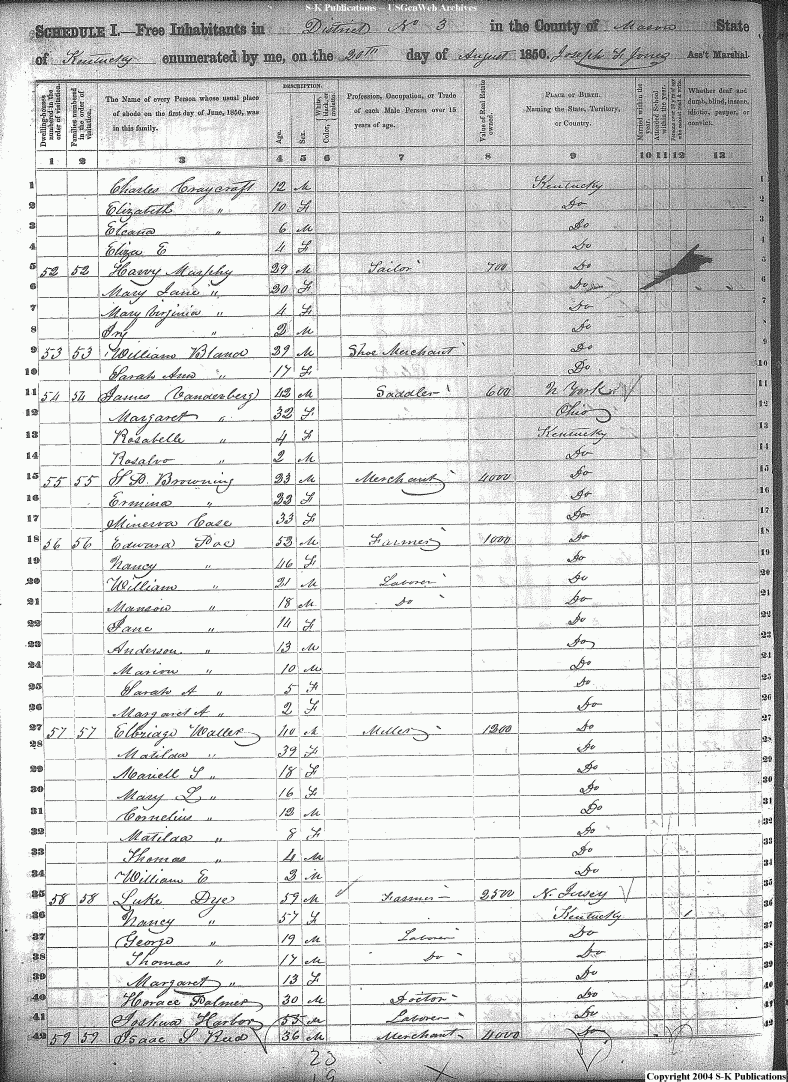 S-K Publications – USGenWeb Archives
SCHEDULE I.—Free Inhabitants in District No 3 in the County of Mason State
of Kentucky enumerated by me, on the 20th day of August 1850. Joseph F Jones Ass't Marshal.
Dwelling-houses numbered in the order of visitation. Families numbered in the order of visitation. The Name of every Person whose usual place of abode on the first day of June, 1850, was in this family. DESCRIPTION. Age. Sex. Color, White, black, or mulatto. Profession, Occupation, or Trade of each Male Person over 15 years of age. Value of Real Estate owned. PLACE OF BIRTH. Naming the State, Territory, or Country. Married within the year. Attended School within the year. Whether deaf and dumb, blind, insane, idiotic, pauper, or convict.
1 2 3 4 5 6 7 8 9 10 11 12 13
1 Charles Craycraft 12 M Kentucky 1
2 Elizabeth " 10 F Do 2
3 Elcana " 6 M Do 3
4 Eliza E 4 F Do 4
5 52 52 Harvy Murphy 29 M Tailor 700 Do 5
6 Mary Jane " 20 F Do 6
7 Mary Virginia " 4 F Do 7
8 " 2 M Do 8
9 53 53 William Bland 29 M Shoe Merchant Do 9
10 Sarah Ann " 17 F Do 10
11 54 54 James Vanderberg 42 M Saddler 600 N York 11
12 Margaret " 32 F Ohio 12
13 Rosabelle " 4 F Kentucky 13
14 Rosalvo " 2 M Do 14
15 55 55 Browning 23 M Merchant 4000 Do 15
16 Ermina " 22 F Do 16
17 Minerva Case 33 F Do 17
18 56 56 Edward Poe 52 M Farmer 1000 Do 18
19 Nancy " 46 F Do 19
20 William " 21 M Laborer Do 20
21 Manson " 18 M Do Do 21
22 Jane " 14 F Do 22
23 Anderson " 13 M Do 23
24 Marion " 10 M Do 24
25 Sarah A " 5 F Do 25
26 Margaret A " 2 F Do 26
27 57 57 Elbridge Waller 40 M Miller 1200 Do 27
28 Matilda " 39 F Do 28
29 Mariell S " 18 F Do 29
30 Mary L " 16 F Do 30
31 Cornelius " 12 M Do 31
32 Matilda " 8 F Do 32
33 Thomas " 4 M Do 33
34 William E 2 M Do 34
35 58 58 Luke Dye 59 M Farmer 2500 N. Jersey 35
36 Nancy " 57 F Kentucky 1 36
37 George " 19 M Laborer Do 37
38 Thomas " 17 M Do Do 38
39 Margaret " 13 F Do 39
40 Horace Palmer 30 M Doctor Do 40
41 Joshua Harbor 55 M Laborer Do 41
42 59 59 Isaac S Reed 36 M Merchant 4000 Do 42
23
19
Copyright 2004 S-K Publications